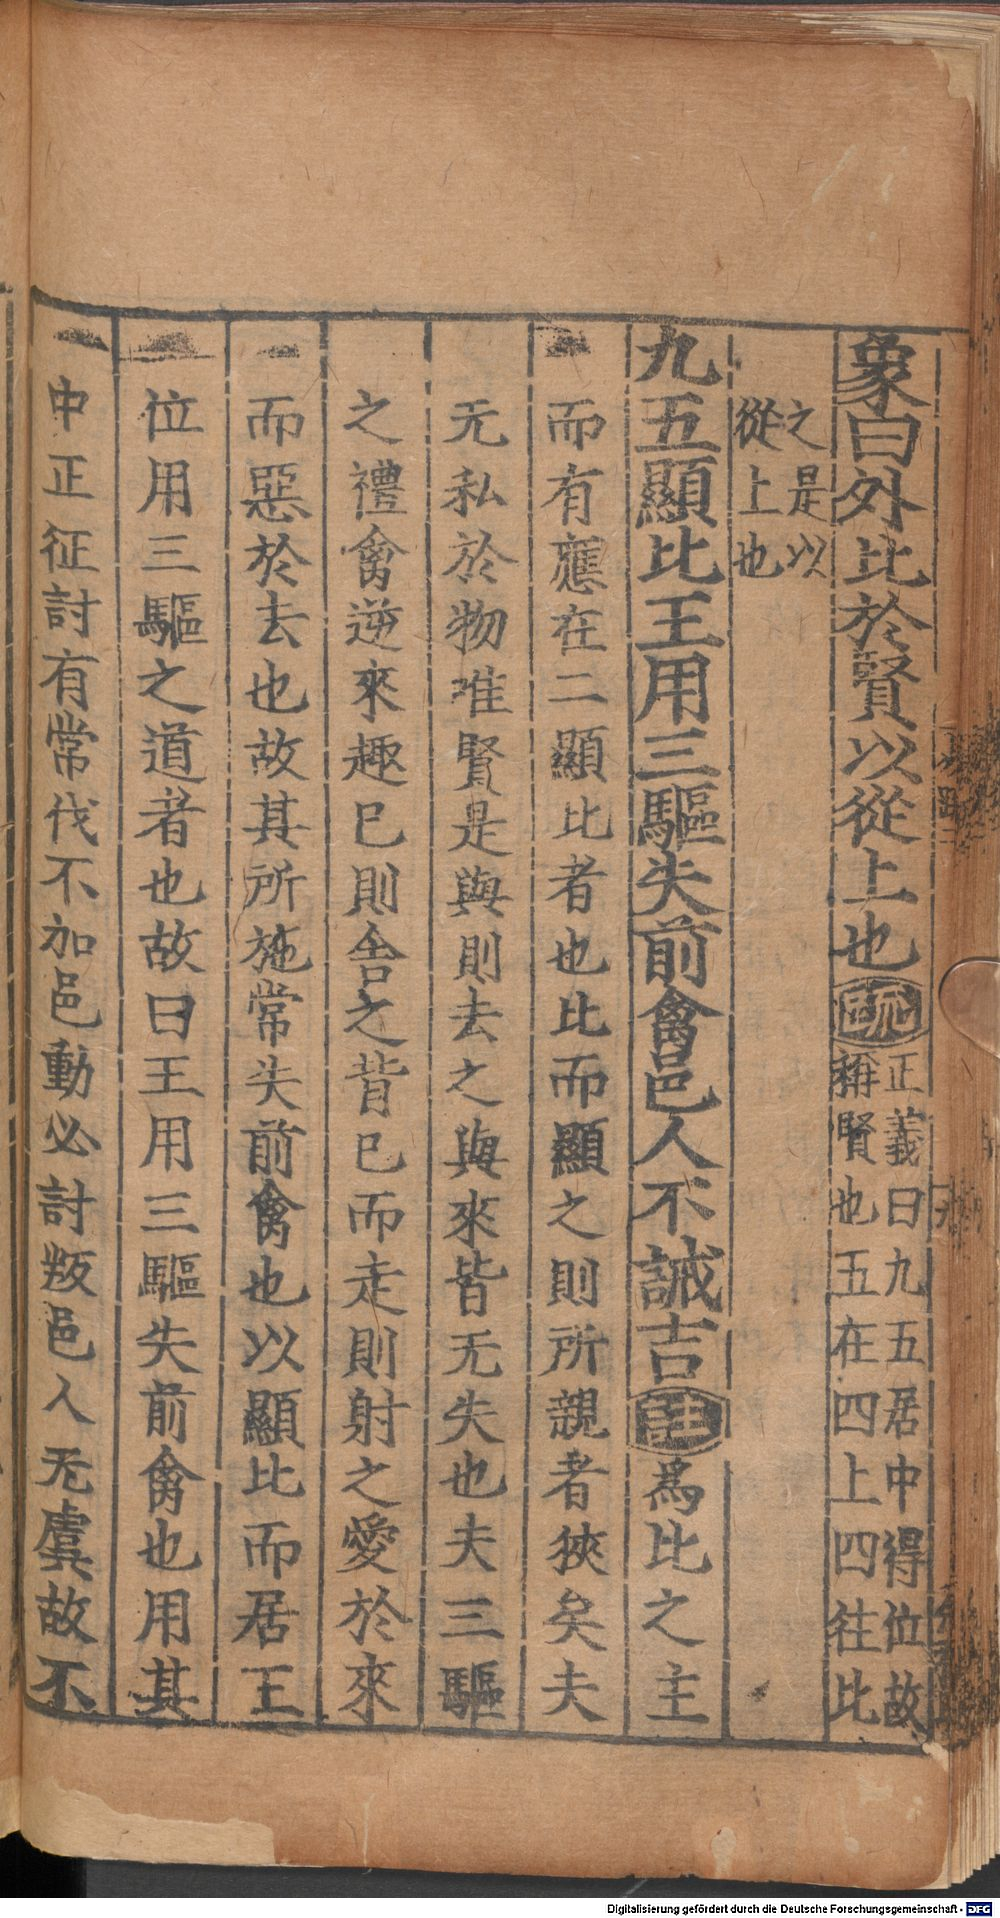 象曰外比於賢以從上也疏正義曰九五居中得位故
稱賢也五在四上四往比
之是以
從上也
九五顯比王用三驅失前禽邑人不誡吉注爲比之主
而有應在二顯比者也比而顯之則所親者狹矣夫
无私於物唯賢是與則去之與來皆无失也夫三驅
之禮禽逆來趣已則舍之背已而走則射之愛於來
而惡於去也故其所施常失前禽也以顯比而居王
位用三驅之道者也故曰王用三驅失前禽也用其
中正征討有常伐不加邑動必討叛邑人无虞故不
Digitalisierung gefördert durch die Deutsche Forschungsgemeinschaft - DFG